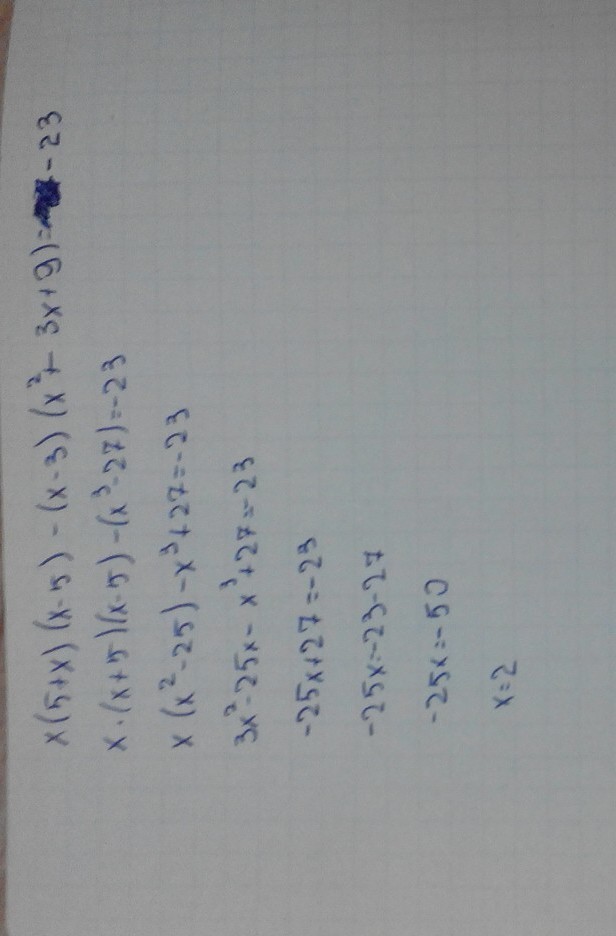 x(5+x)(x-5)-(x-3)(x²+3x+9)=-23
x·(x+5)(x-5)-(x³-27)=-23
x(x²-25)-x³+27=-23
3x²-25x-x³+27=-23
-25x+27=-23
-25x=-23-27
-25x=-50
x=2